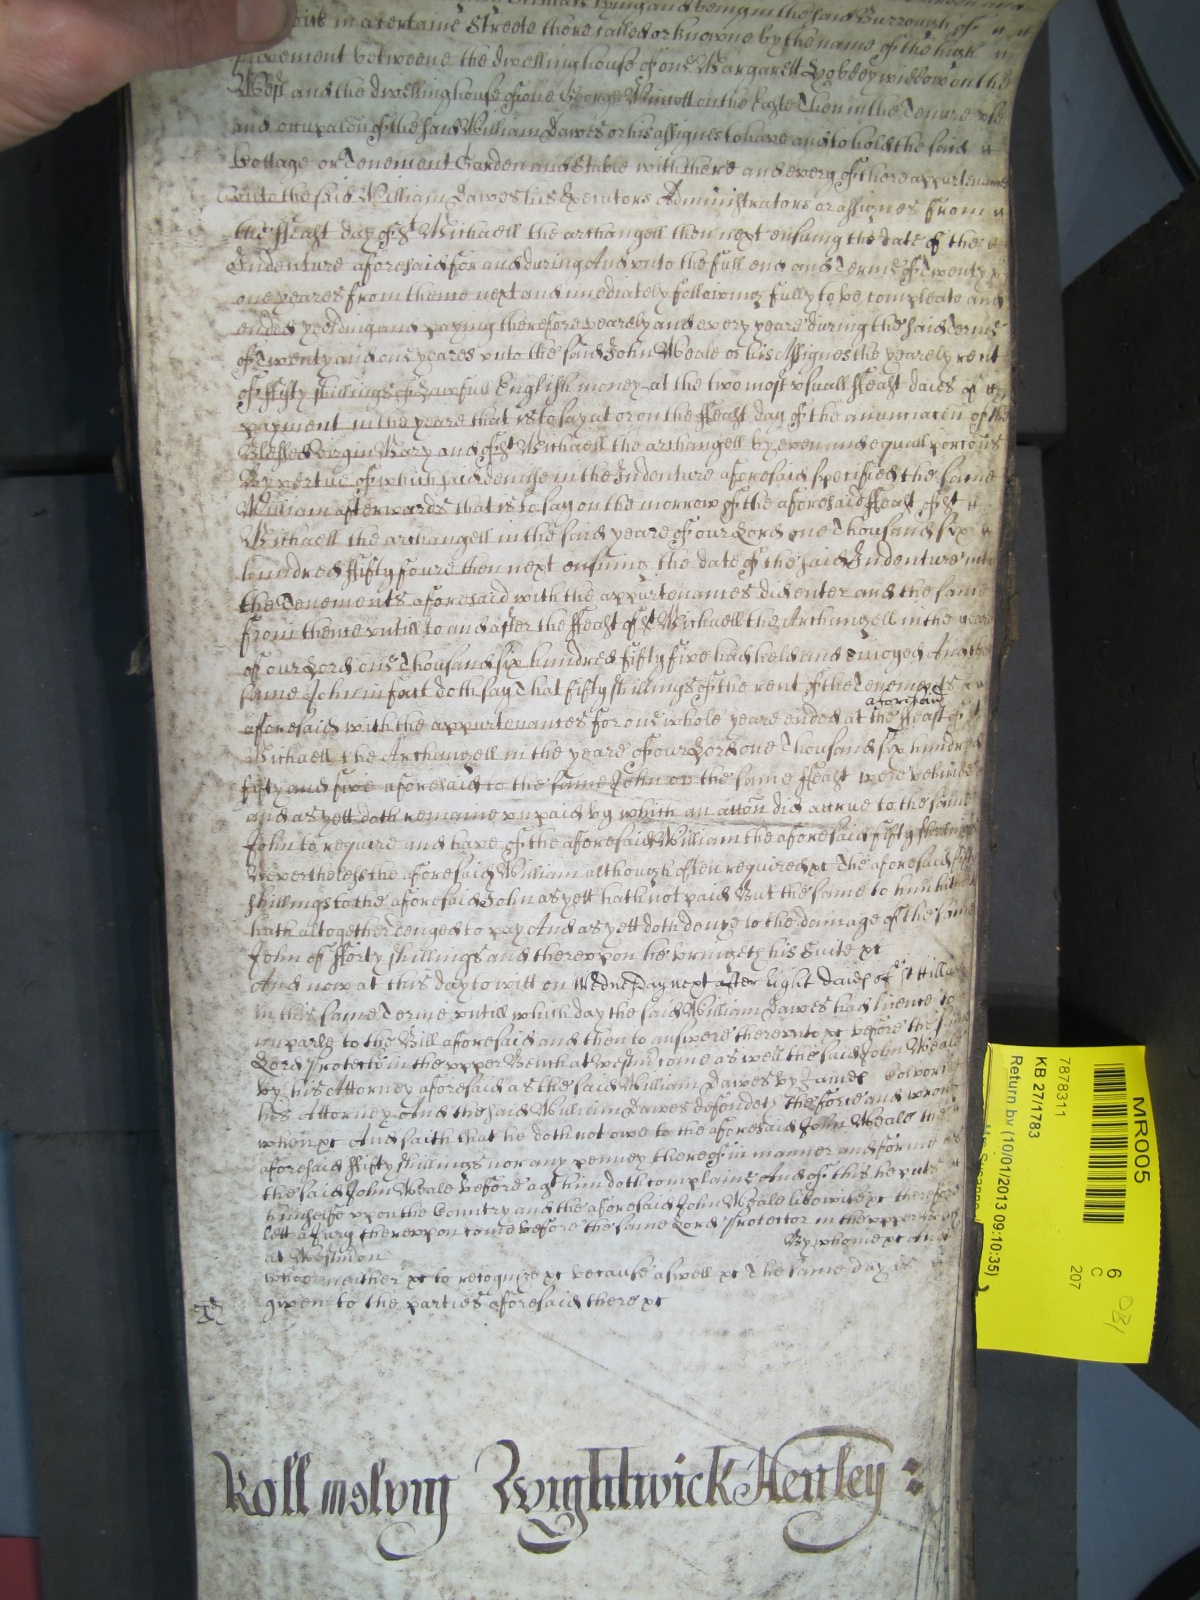 lying and being in the said Burrough of
in a certaine Streete there called or knowne by the name of the high
Pavement betweene the dwelling house of one Margarett widdow on the
West and the dwelling house of one George on the Easte Then in the Tenure use
and occupacon of the said William Dawes or his assignes to have and to hold the said
Cottage or Tenement Garden and Stable with there and every of there appurtenances
unto the said William Dawes his Executors Administrators or assignes from
the ffeast day of St Michaell the archangell then next ensuing the date of the
Indenture aforesaid for and during And unto the full end and Terme of Twenty
one yeares from thence next and imediately following fully to be compleate and
ended yeelding and paying therefore yearely and every yeare during the said Terme
of Twenty and one yeares unto the said John Weale or his Assignes the yearely rent
of ffifty shillings of Lawfull English money at the two most usuall ffeast daies of
payment in the yeare that is to say at or on the ffeast day of the anunciacon of the
Blessed Virgin Mary and of St Michaell the archangell by even and equall porcons
By vertue of which said demise in the Indenture aforesaid specified the same
William afterwards that is to say on the morrow of the aforesaid ffeast of St
Michaell the archangell in the said yeare of our Lord one Thousand six
hundred ffifty foure then next ensuing the date of the said Indenture into
the Tenements aforesaid with the appurtenances did enter and the same
from thence untill to and after the ffeast of St Michaell the Archangell in the yeare
of our Lord one Thousand six hundred fifty five had held and enioyed And the
same John in fact doth say That fifty shillings of the rent of the Tenements
aforesaid
aforesaid with the appurtenances for one whole yeare ended at the ffeast of St
Michaell the Archangell in the yeare of our Lord one Thousand six hundred
fifty and five aforesaid to the same John on the same ffeast were behinde
and as yett doth remaine unpaid by which an accon did accrue to the same
John to require and have of the aforesaid William the aforesaid fifty shillings
Neverthelesse the aforesaid William although often required &c The aforesaid fifty
shillings to the aforesaid John as yett hath not paid But the same to him hitherto
hath altogether denyed to pay And as yett doth deny to the damage of the same
John of fforty shillings and thereupon he bringeth his Suite &c
And now at this day to witt on Wednesday next after Eight daies of St Hillary
in this same Terme untill which day the said William Dawes had licence to
imparle to the Bill aforesaid and then to answere thereunto &c before the same
Lord Protector in the upper Bench at Westm come as well the said John Weale
by his Attorney aforesaid as the said William Dawes by James
his Attorney And the said William Dawes defendeth The force and wrong
when &c And saith that he doth not owe to the aforesaid John Weale the
aforesaid ffifty shillings nor any penney thereof in manner and forme as
the said John Weale before agt him doth complaine And of this he putts
himselfe upon the Country and the aforesaid John Weale likewise &c therefore
lett a Jury thereupon come before the same Lord Protector in the upper Bench
at Westm on By whome &c and
who neither &c to recognize &c because aswell &c The same day is
given to the parties aforesaid there &c
Roll Wightwick Henley :
MR005
6
C
207
7878311
KB 27/1783
Return by (10/01/2013 09:10:35)